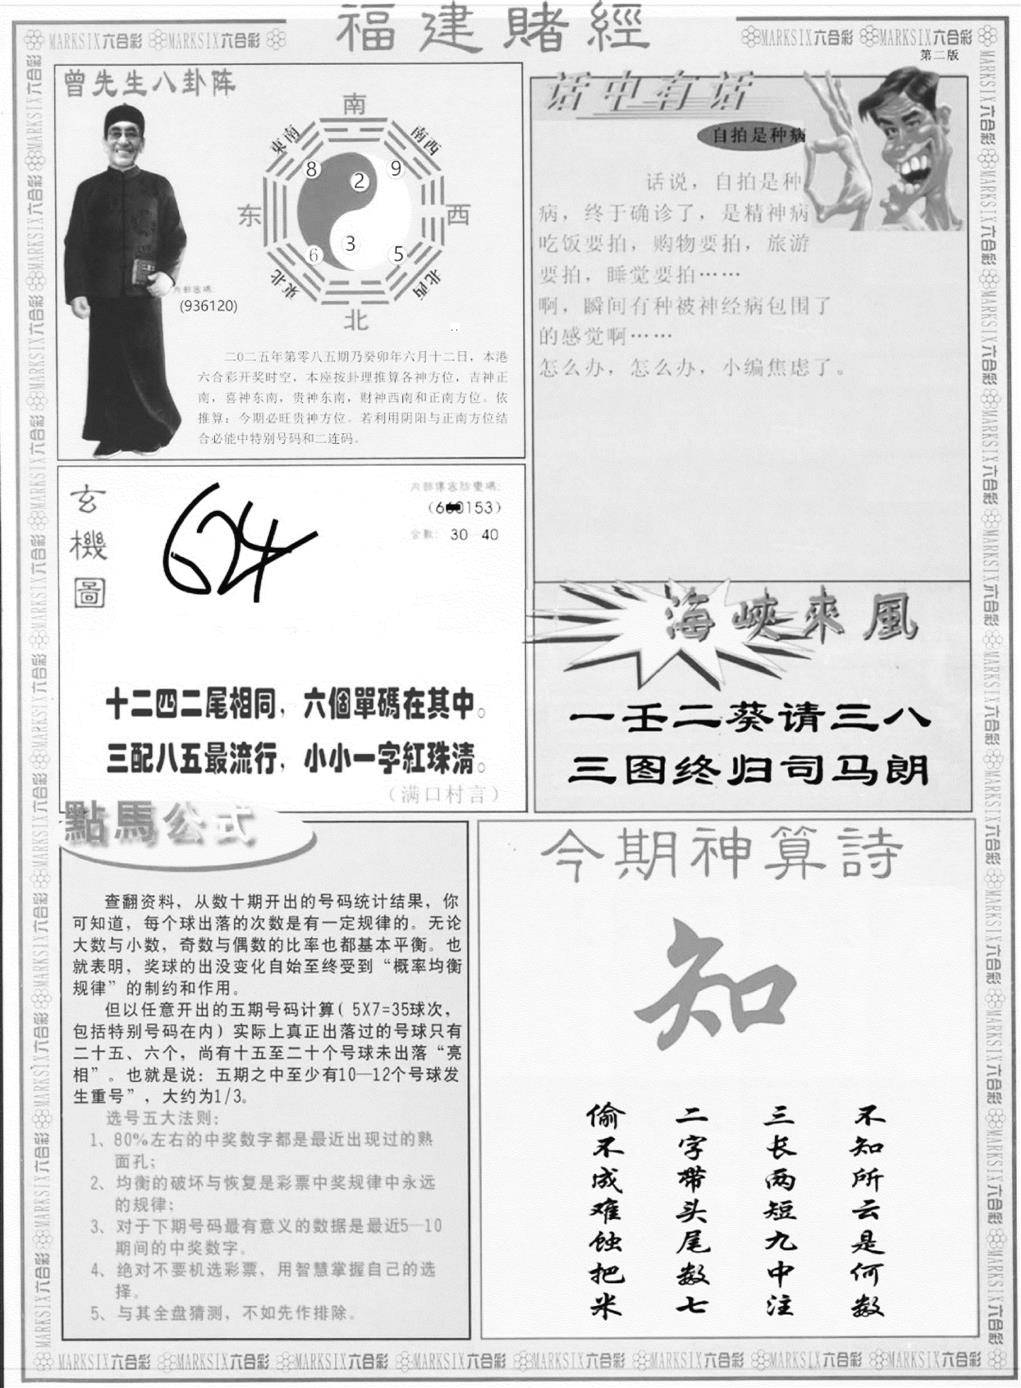 福建賭經
MARKSIX六合彩 MARKSIX六合彩
MARKSIX六合彩 MARKSIX六合彩
第二版
曾先生八卦阵
南
東南
南西
8
2
9
东
西
6
3
5
東北
北西
北
内部密碼:
(936120)
二0二五年第零八五期乃癸卯年六月十二日，本港
六合彩开奖时空，本座按卦理推算各神方位，吉神正
南，喜神东南，贵神东南，财神西南和正南方位。依
推算：今期必旺贵神方位。若利用阴阳与正南方位结
合必能中特别号码和二连码。
话中有话
自拍是种病
话说，自拍是种
病，终于确诊了，是精神病
吃饭要拍，购物要拍，旅游
要拍，睡觉要拍……
啊，瞬间有种被神经病包围了
的感觉啊……
怎么办，怎么办，小编焦虑了。
玄機圖
624
内部傳密防僞碼:
0153)
合數: 30—40
十二四二尾相同，六個單碼在其中。
三配八五最流行，小小一字紅珠清。
（满口村言）
海峽來風
一壬二葵请三八
三图终归司马朗
點馬公式
查翻资料，从数十期开出的号码统计结果，你
可知道，每个球出落的次数是有一定规律的。无论
大数与小数，奇数与偶数的比率也都基本平衡。也
就表明，奖球的出没变化自始至终受到“概率均衡
规律”的制约和作用。
但以任意开出的五期号码计算( 5X7=35球次，
包括特别号码在内）实际上真正出落过的号球只有
二十五、六个，尚有十五至二十个号球未出落“亮
相”。也就是说：五期之中至少有10—12个号球发
生重号”，大约为1/3。
选号五大法则:
1、80%左右的中奖数字都是最近出现过的熟
面孔；
2、均衡的破坏与恢复是彩票中奖规律中永远
的规律；
3、对于下期号码最有意义的数据是最近5—10
期间的中奖数字。
4、绝对不要机选彩票，用智慧掌握自己的选
择。
5、与其全盘猜测，不如先作排除。
今期神算詩
知
不知所云是何数
三长两短九中注
二字带头尾数七
偷不成难蚀把米
MARKSIX六合彩 MARKSIX六合彩 MARKSIX六合彩 MARKSIX六合彩 MARKSIX六合彩 MARKSIX六合彩 MARKSIX六合彩 MARKSIX六合彩